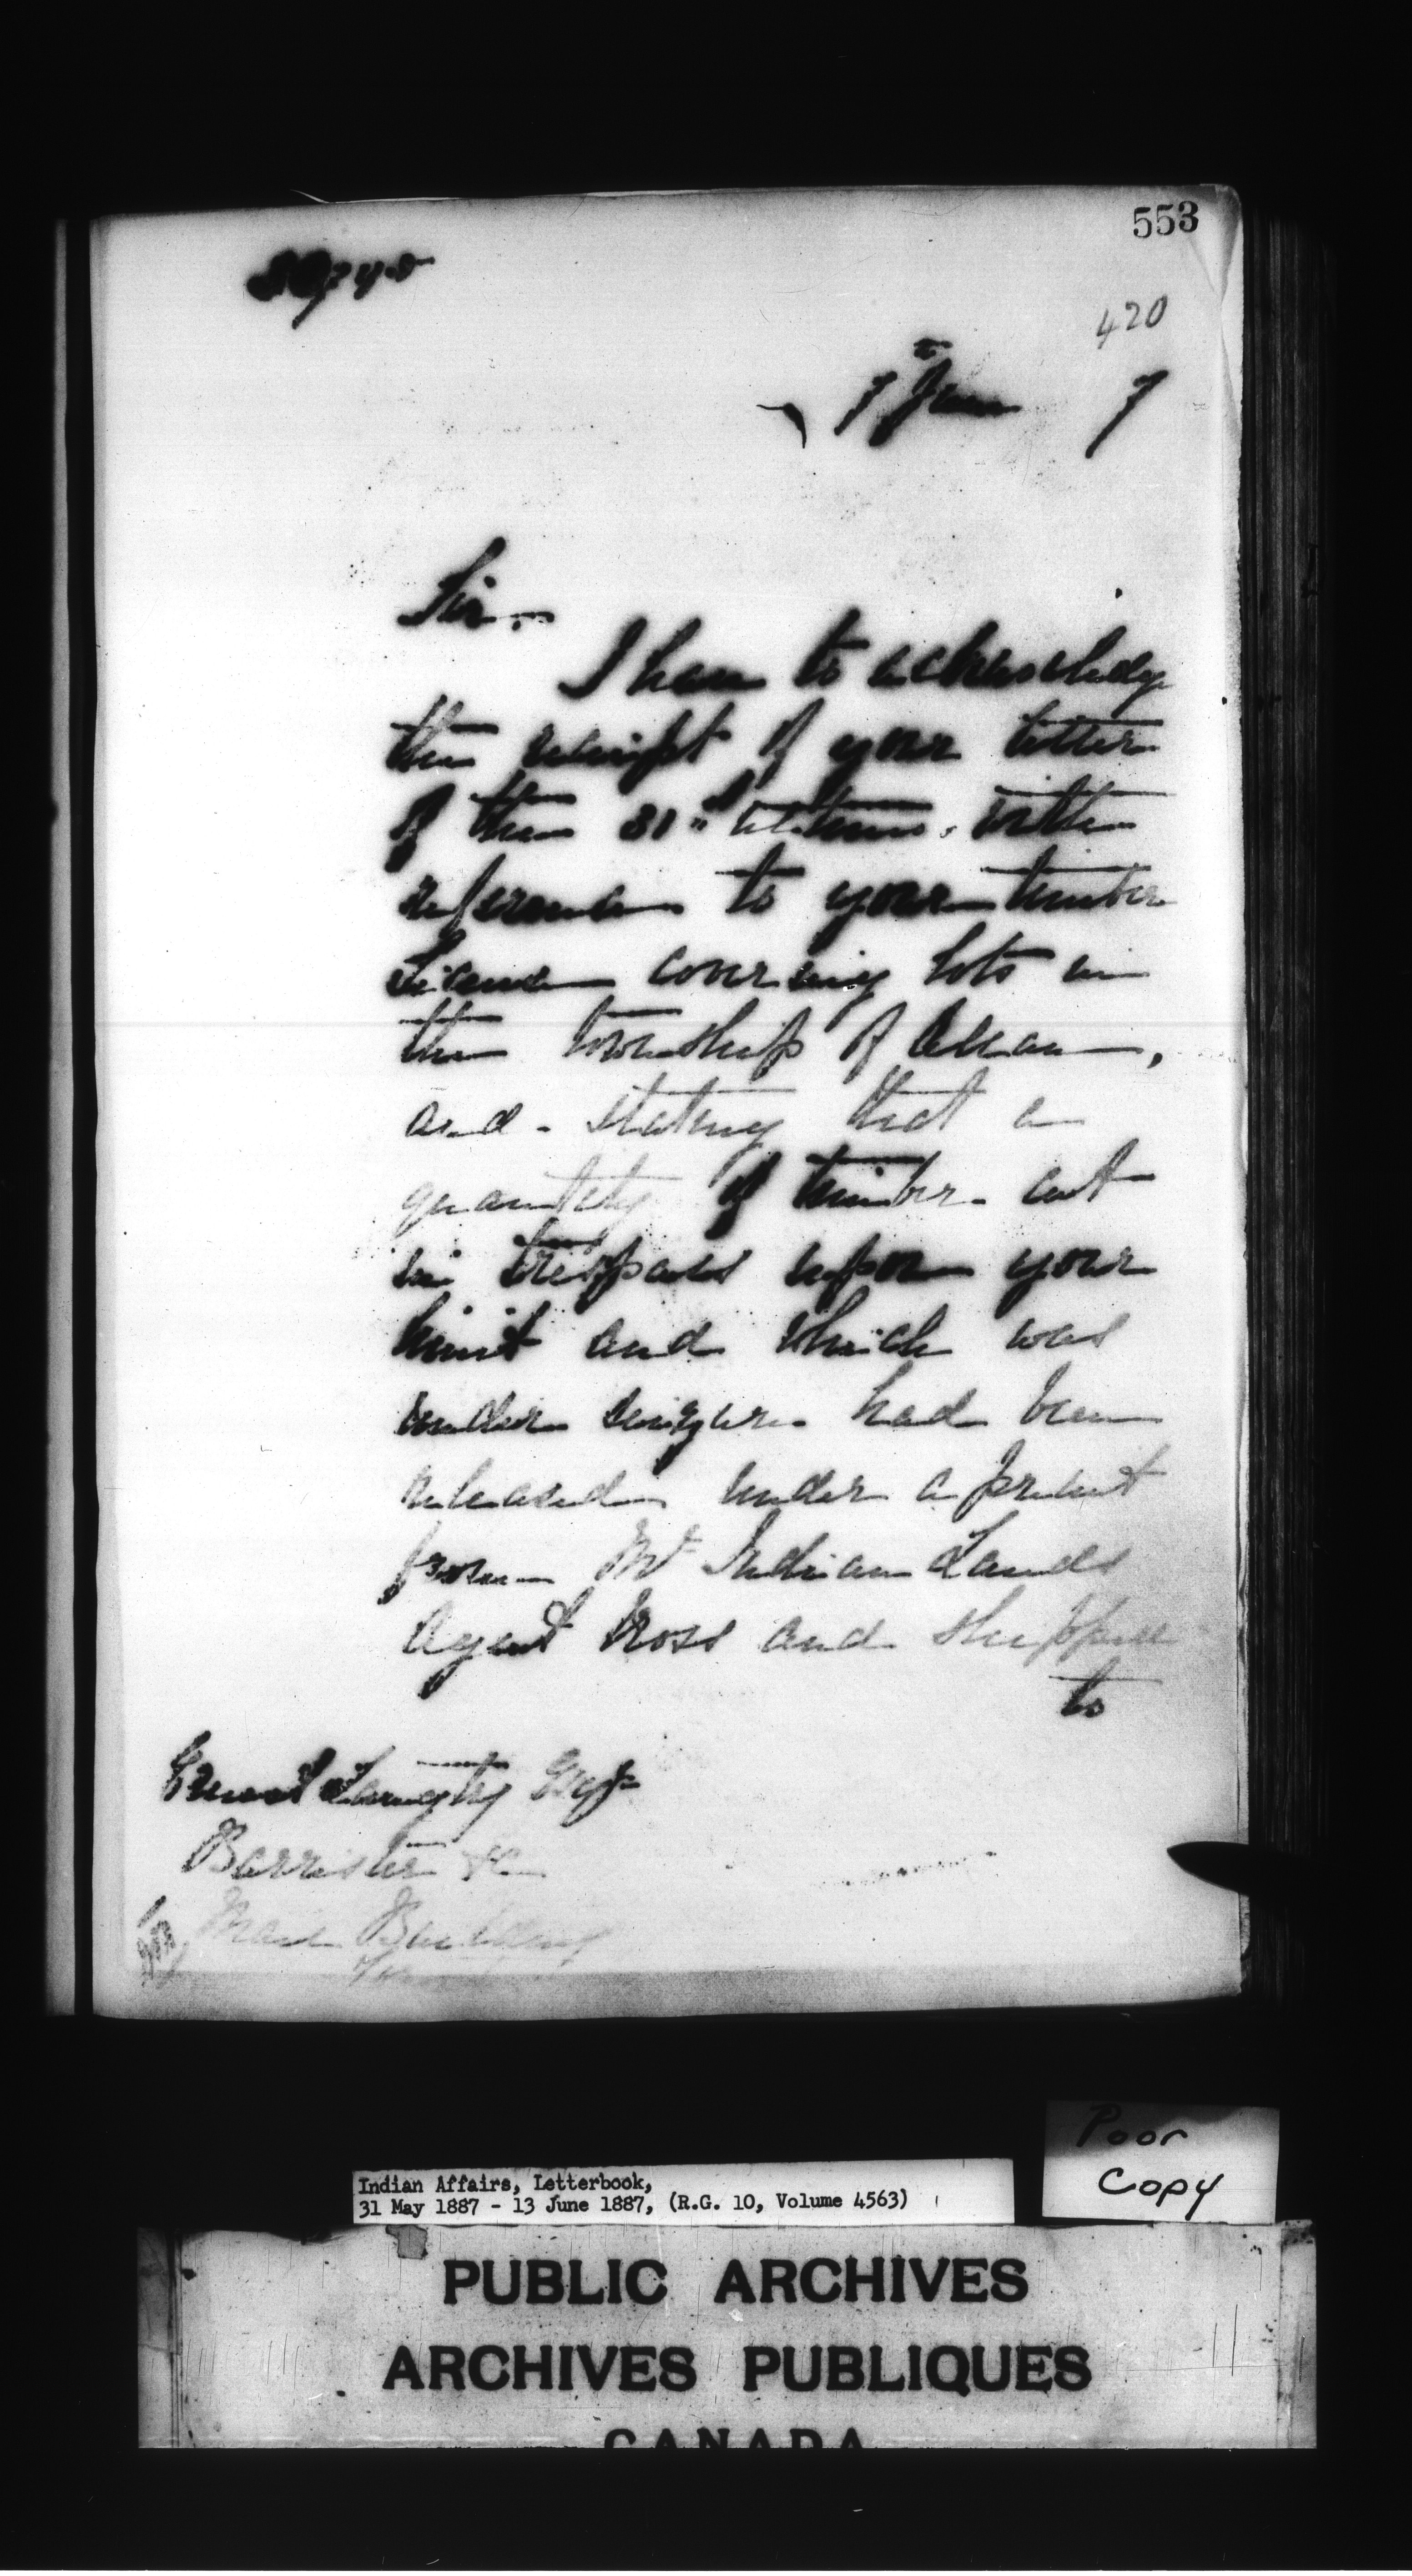 553
420
7th June 7
Sir.
I have to acknowledge
the receipt of your letter
of the 31st ultimo. with
reference to your timber
License covering lots in
the township of Allan,
and stating that a
quantity of timber cut
in trespass upon your
limit and which was
under seizure had been
released under a permit
from Mr Indian Lands
Agent Ross and shipped
to
Esqr
Barrister &c
Building
Poor
Copy
Indian Affairs, Letterbook,
31 May 1887 - 13 June 1887, (R.G. 10, Volume 4563)
PUBLIC ARCHIVES
ARCHIVES PUBLIQUES
CANADA